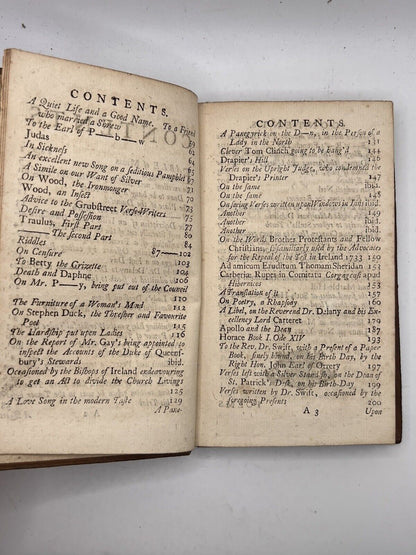 CONTENTS.
A Quiet Life and a Good Name. To a Friend
who married a Shrew 59
To the Earl of P—b—w
Judas
In Sickness
An excellent new Song on a seditious Pamphlet
A Simile on our Want of Silver
On Wood, the Ironmonger
Wood, an Insect
Advice to the Grubstreet Verse-Writers 75
Desire and Possession 77
Traulus, First Part 80
— The Second Part 84
Riddles 87—102
On Censure ibid.
To Betty the Grizette 104
Death and Daphne 106
On Mr. P—y, being put out of the Council
110
The Furniture of a Woman's Mind 112
On Stephen Duck, the Thresher and Favourite
Poet 115
The Hardship put upon Ladies 116
On the Report of Mr. Gay's being appointed to
inspect the Accounts of the Duke of Queens-
bury's Stewards ibid.
Occasioned by the Bishops of Ireland endeavouring
to get an Act to divide the Church Livings
125
A Love Song in the modern Taste 129
A Pane-
CONTENTS.
A Panegyrick in the D—n, in the Person of a
Lady in the North 131
Clever Tom Clinch going to be hang'd 144
Drapier's Hill 146
Verses on the Upright Judge, who condemn'd the
Drapier's Printer 147
On the same ibid.
On the same ibid.
On seeing Verses written upon Windows in Inns ibid.
Another 149
Another ibid.
Another ibid.
On the Words Brother Protestants and Fellow
Christians, so familiarly used by the Advocates
for the Repeal of the Test in Ireland 1733 150
Ad amicum Eruditum Thomam Sheridan 153
Carberiæ Rupes in Comitatu Corgagensi apud
Hibernicos
A Translation of it 157
On Poetry, a Rhapsody 160
A Libel, on the Reverend Dr. Delany and his Ex-
cellency Lord Carteret 179
Apollo and the Dean 187
Horace Book I. Ode XIV 193
To the Rev. Dr. Swift, with a Present of a Paper
Book, finely bound, on his Birth-Day, by the
Right Hon. John Earl of Orrery 197
Verses left with a Silver Standish, on the Dean of
St. Patrick's Desk, on his Birth-Day 199
Verses written by Dr. Swift, occasioned by the
foregoing Presents 200
A 3 Upon